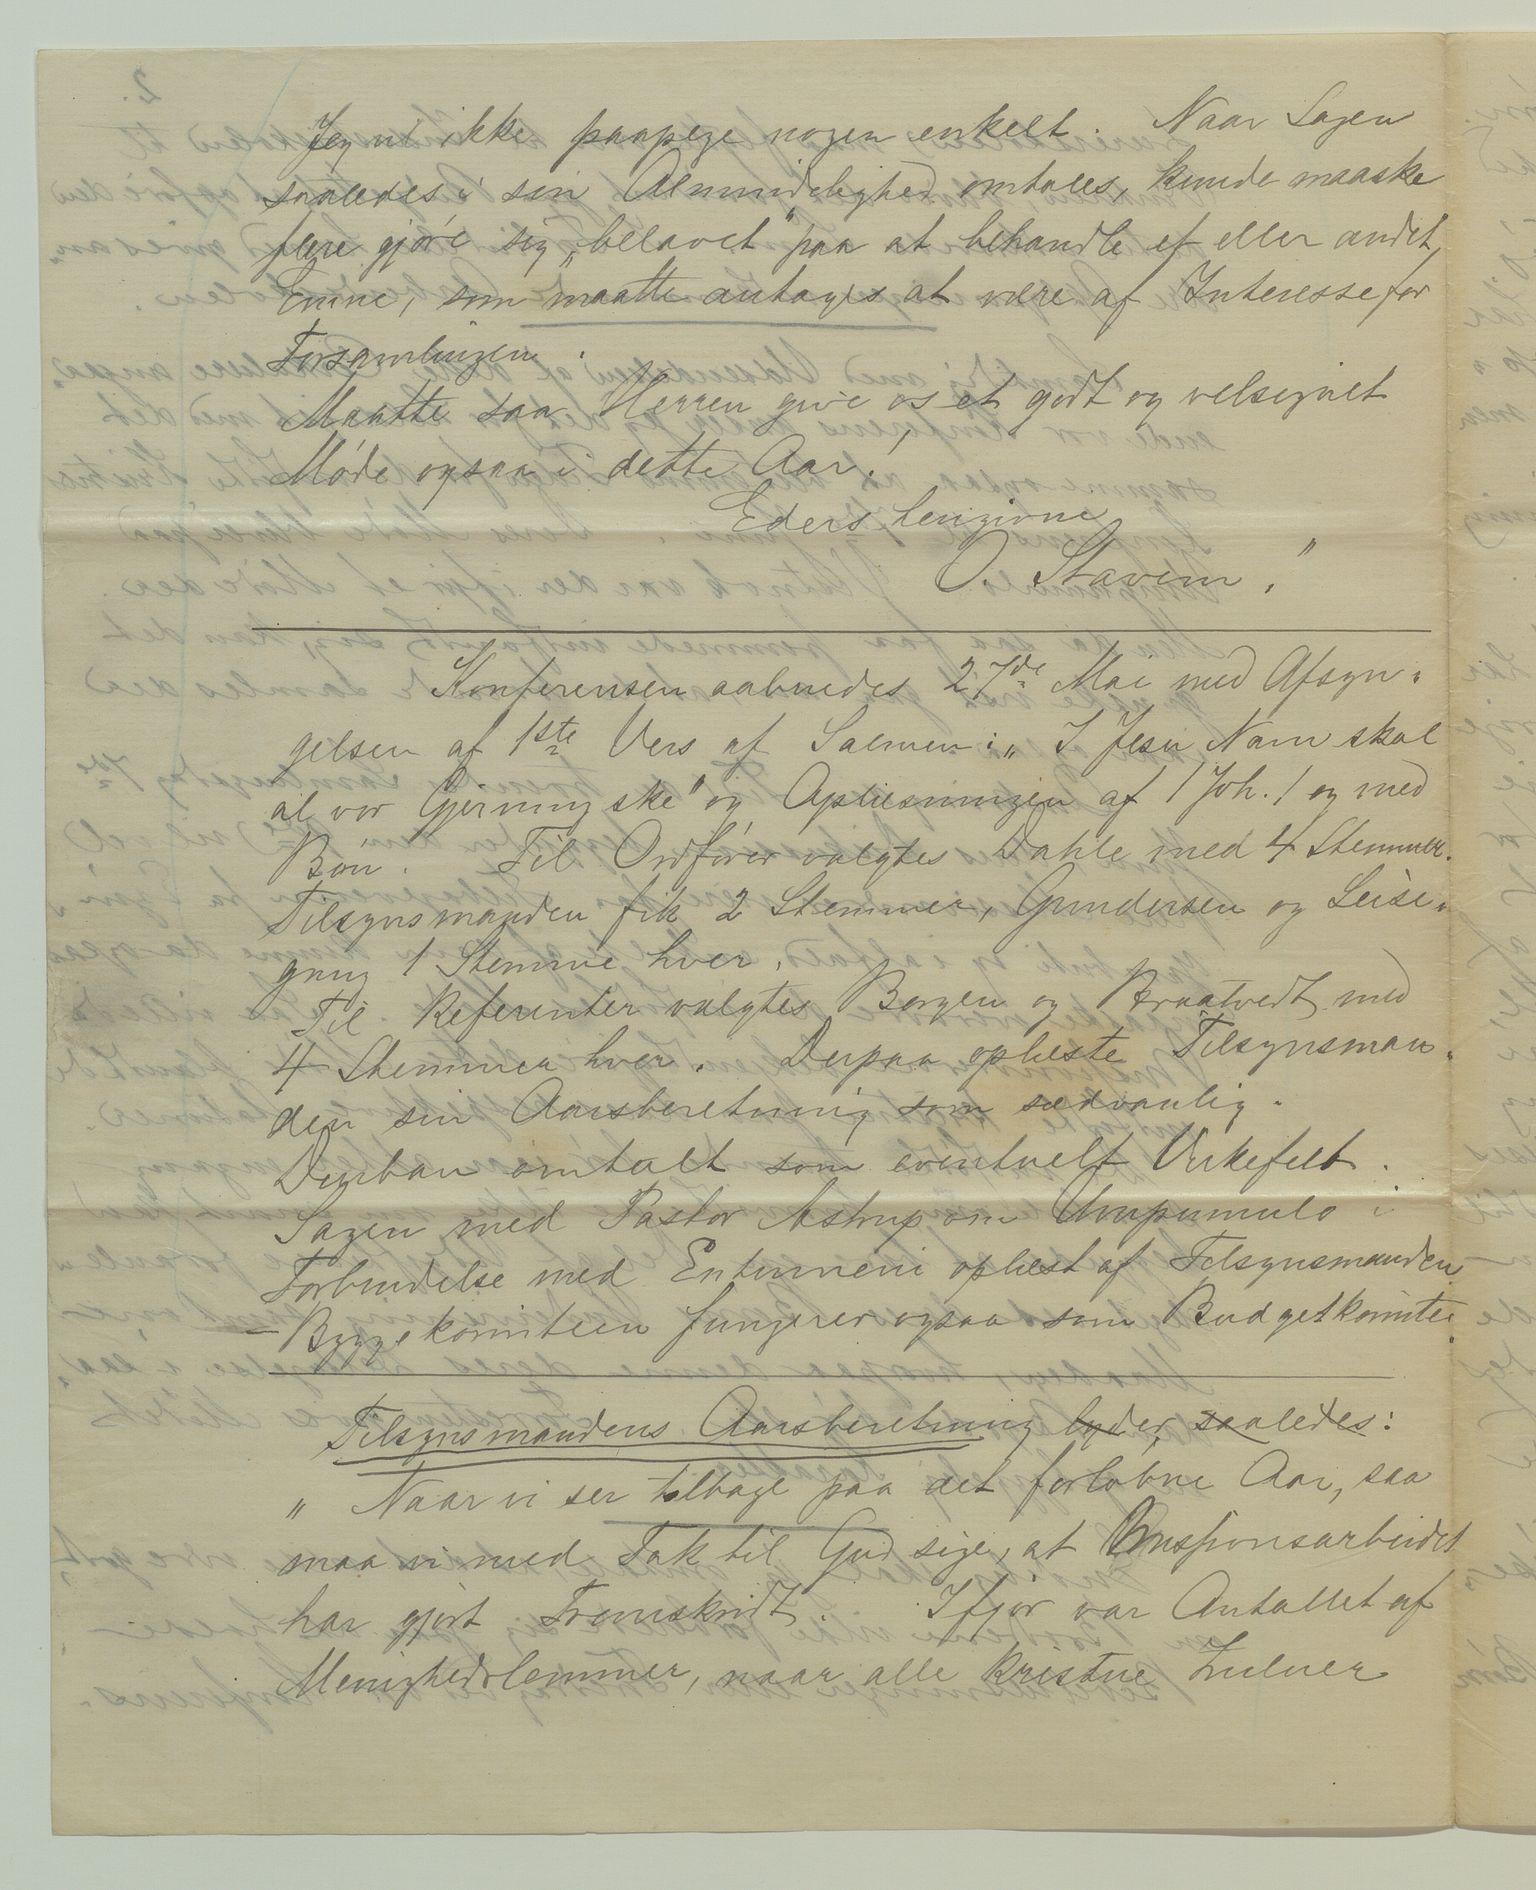 Jeg vil ikke paapege nogen enkelt. Naar Sagen
saaledes i sin Almindelighed omtales, kunde maaske
flere gjøre sig „belavet" paa at behandle et eller andet
Emne, som maatte antages at være af Interesse for
Forsamlingen.
Maatte saa Herren give os et godt og velsignet
Møde ogsaa i dette Aar!
Eders hengivne
O. Stavem."
Konferensen aabnedes 27de Mai med Afsyn-
gelsen af 1ste Vers af Salmen: „I Jesu Navn skal
al vor Gjerning ske" og Oplæsningen af 1 Joh. 1 og med
Bøn. Til Ordfører valgtes Dahle med 4 Stemmer.
Tilsynsmanden fik 2 Stemmer, Gundersen og Leise-
gang 1 Stemme hver.
Til Referenter valgtes Borgen og Braatvedt med
4 Stemmer hver. Derpaa oplæste Tilsynsman-
den sin Aarsberetning som sædvanlig.
Durban omtalt som eventuelt Virkefelt.
Sagen med Pastor Astrup om Umpumulo i
Forbindelse med Entumeni oplæst af Tilsynsmanden
- Byggekomiteen fungerer ogsaa som Budgetkomite.
Tilsynsmandens Aarsberetning lyder saaledes:
„ Naar vi ser tilbage paa det forløbne Aar, saa
maa vi med Tak til Gud sige, at Missionsarbeidet
har gjort Fremskridt. Ifjor var Antallet af
Menighedslemmer, naar alle kristne Zuluer